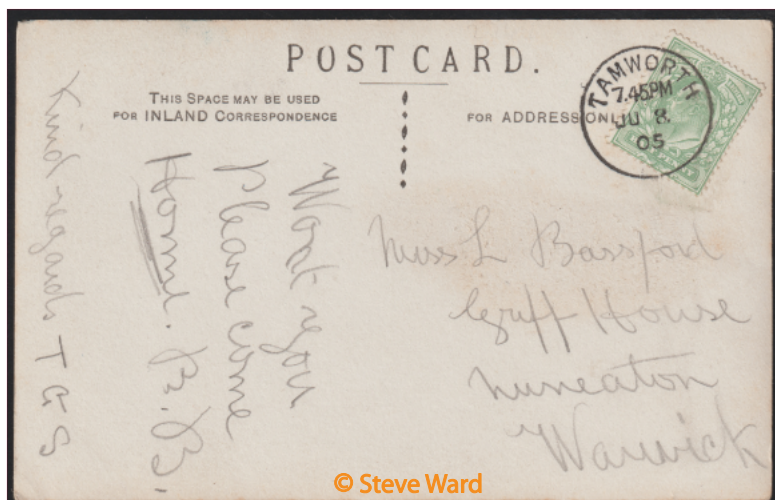 POST CARD.
THIS SPACE MAY BE USED
FOR INLAND CORRESPONDENCE
FOR ADDRESS ONLY
TAMWORTH
7.45PM
JU 8
05
Wont you
Please come
Home. B. B.
Kind regards T G S
Miss L Bassford
Griff House
Nuneaton
Warwick
© Steve Ward